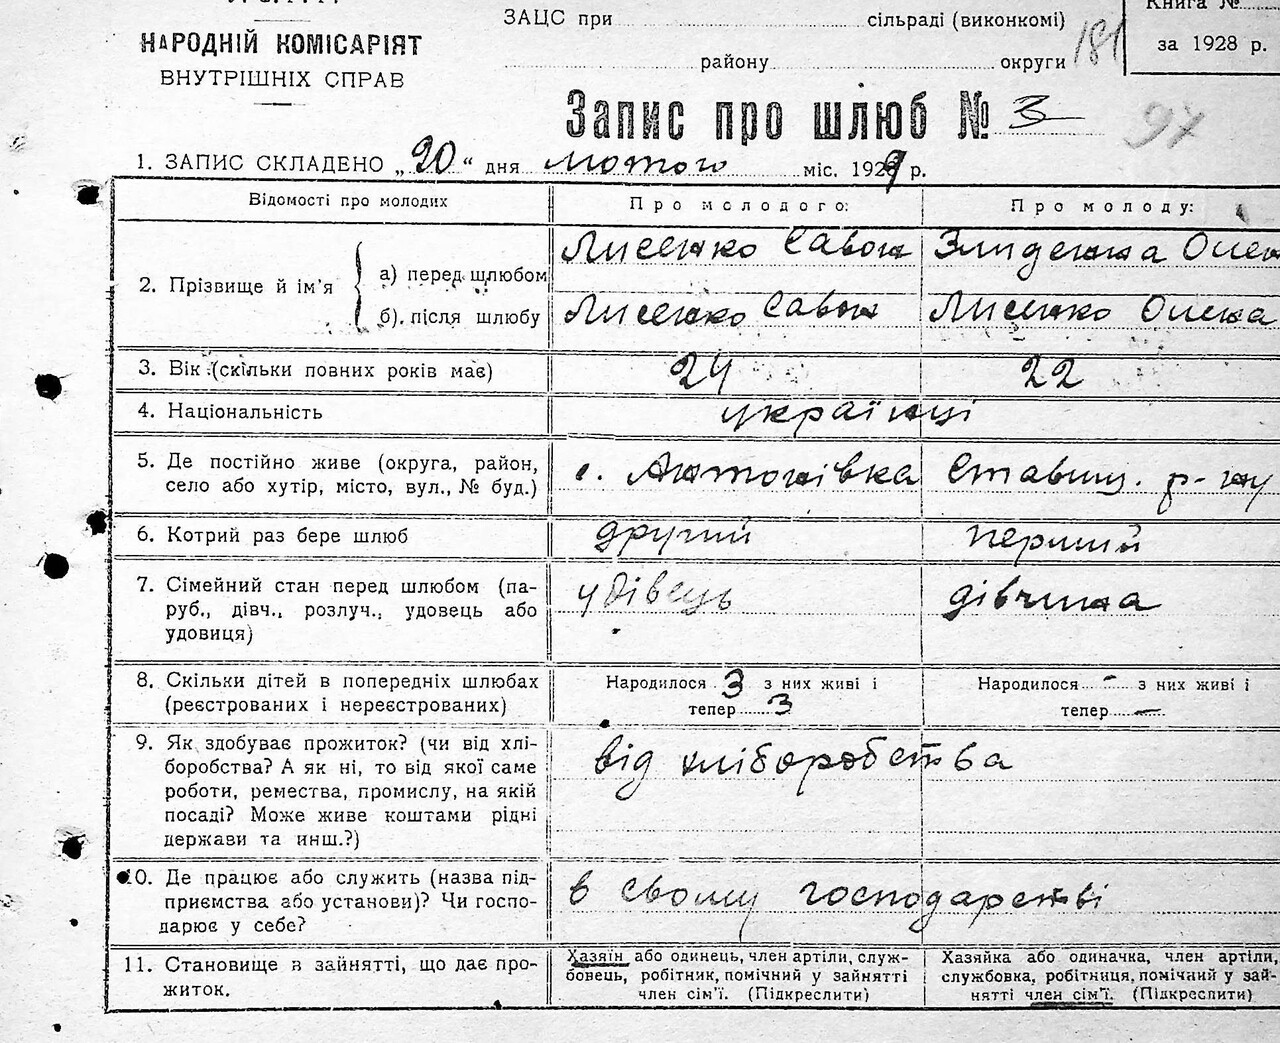 ЗАЦС при сільраді (виконкомі)
Книга №
НАРОДНІЙ КОМІСАРІЯТ
за 1928 р.
ВНУТРІШНІХ СПРАВ
району округи 181
Запис про шлюб № 3
97
1. ЗАПИС СКЛАДЕНО „20“ дня лютого міс. 1929 р.
Відомості про молодих
Про молодого:
Про молоду:
2. Прізвище й ім’я
а) перед шлюбом
Лисенко Савон
Злиденна Олен
б) після шлюбу
Лисенко Савон
Лисенко Олена
3. Вік (скільки повних років має)
24
22
4. Національність
українці
5. Де постійно живе (округа, район,
село або хутір, місто, вул., № буд.)
с. Антонівка Ставищ. р-ну
6. Котрий раз бере шлюб
другий
перший
7. Сімейний стан перед шлюбом (па-
руб., дівч., розлуч., удовець або
удовиця)
удівець
дівчина
8. Скільки дітей в попередніх шлюбах
(реєстрованих і нереєстрованих)
Народилося 3 з них живі і
тепер 3
Народилося - з них живі і
тепер —
9. Як здобуває прожиток? (чи від хлі-
боробства? А як ні, то від якої саме
роботи, ремества, промислу, на якій
посаді? Може живе коштами рідні
держави та инш.?)
від хліборобства
10. Де працює або служить (назва під-
приємства або установи)? Чи госпо-
дарює у себе?
в свому господарстві
11. Становище в зайнятті, що дає про-
житок.
Хазяїн або одинець, член артілі, служ-
бовець, робітник, помічний у зайнятті
член сім’ї. (Підкреслити)
Хазяйка або одиначка, член артіли,
службовка, робітниця, помічний у зай-
нятті член сім’ї. (Підкреслити)